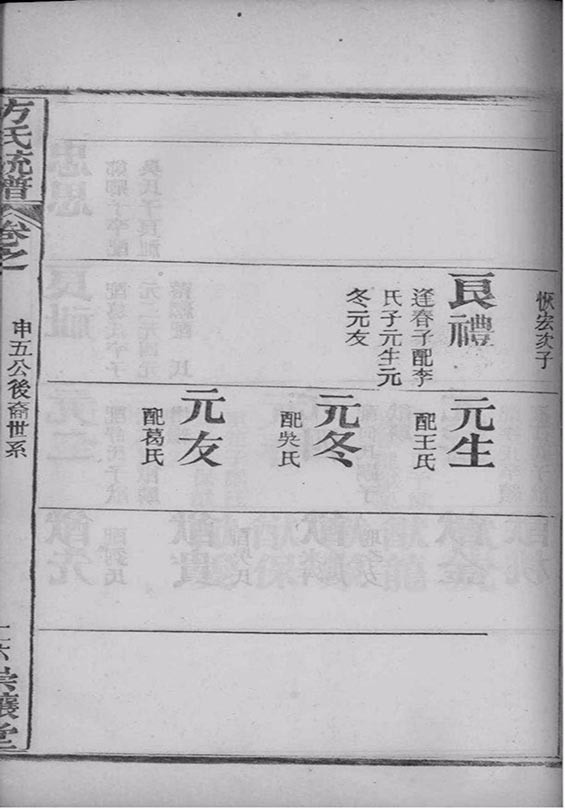 恢宏次子
良禮
逢春子配李
氏子元生元
冬元友
元生
配王氏
元冬
配吳氏
元友
配葛氏
方氏統譜
卷之一
申五公後裔世系